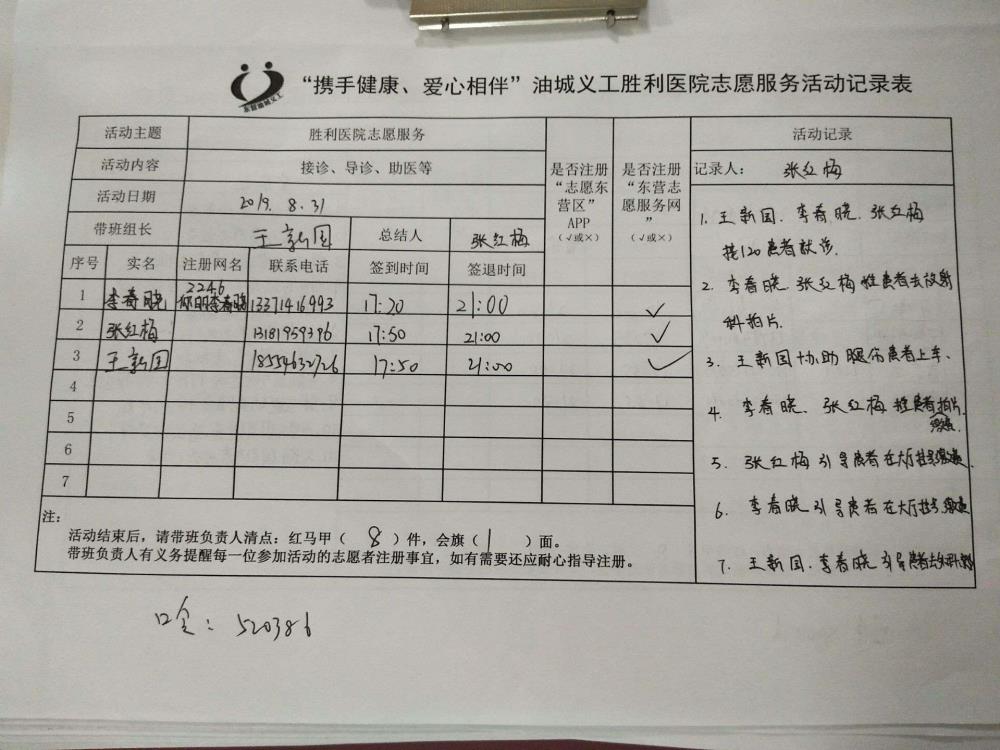 东营油城义工
“携手健康、爱心相伴”油城义工胜利医院志愿服务活动记录表
活动主题 胜利医院志愿服务
活动内容 接诊、导诊、助医等
活动日期 2019. 8. 31
带班组长 王新国 总结人 张红梅
序号 实名 注册网名 联系电话 签到时间 签退时间
是否注册
“志愿东
营区”
APP
(√或×)
是否注册
“东营志
愿服务网
”
(√或×)
1 李春晓 2246 李春晓 13371416993 17:20 21:00 √
2 张红梅 13181959396 17:50 21:00 √
3 王新国 18554632726 17:50 21:00 √
4
5
6
7
注:
活动结束后,请带班负责人清点:红马甲( 8 )件,会旗( 1 )面。
带班负责人有义务提醒每一位参加活动的志愿者注册事宜,如有需要还应耐心指导注册。
活动记录
记录人: 张红梅
1. 王新国、李春晓、张红梅
接120患者就诊.
2. 李春晓 张红梅推患者去放射
科拍片.
3. 王新国协助腿伤患者上车、
4. 李春晓、张红梅推患者拍片
缴费.
5. 张红梅引导患者在大厅挂号缴费
6. 李春晓引导患者在大厅挂号缴费
7. 王新国、李春晓引导患者去
口令: 520386